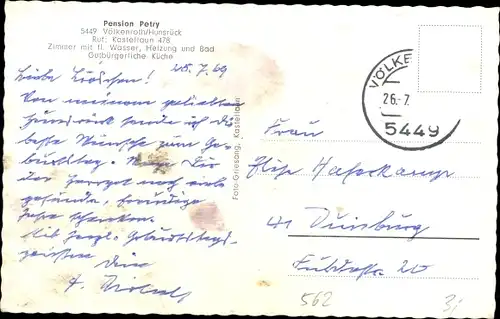 Pension Petry
5449 Völkenroth/Hunsrück
Ruf: Kastellaun 478
Zimmer mit fl. Wasser, Heizung und Bad
Gutbürgerliche Küche
25.7.69
Liebe
Von meinem geliebten
Hunsrück sende ich die
beste Wünsche zum Ge-
burtstag. Möge Dir
der Herrgott noch viele
gesunde, freudige
Jahre schenken.
Mit herzl. Geburtstags-
grüßen Dein
Foto-Griesang, Kastellaun
VÖLKE
26.-7.
5449
Frau
Elise Haferkamp
41 Duisburg
20
562